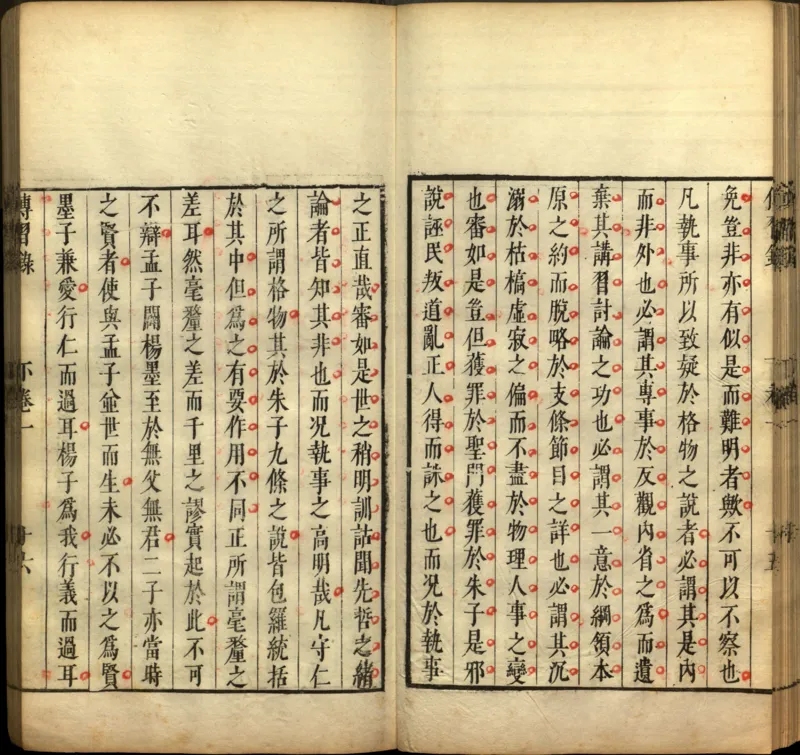 免豈非亦有似是而難明者歟不可以不察也
凡執事所以致疑於格物之說者必謂其是內
而非外也必謂其專事於反觀內省之為而遺
棄其講習討論之功也必謂其一意於綱領本
原之約而脫略於支條節目之詳也必謂其沉
溺於枯槁虛寂之偏而不盡於物理人事之變
也審如是豈但獲罪於聖門獲罪於朱子是邪
說誣民叛道亂正人得而誅之也而况於執事
之正直哉審如是世之稍明訓詁聞先哲之緒
論者皆知其非也而况執事之高明哉凡守仁
之所謂格物其於朱子九條之說皆包羅統括
於其中但爲之有要作用不同正所謂毫釐之
差耳然毫釐之差而千里之謬實起於此不可
不辯孟子闢楊墨至於無父無君二子亦當時
之賢者使與孟子並世而生未必不以之爲賢
墨子兼愛行仁而過耳楊子爲我行義而過耳
傳習錄
下卷一
十六